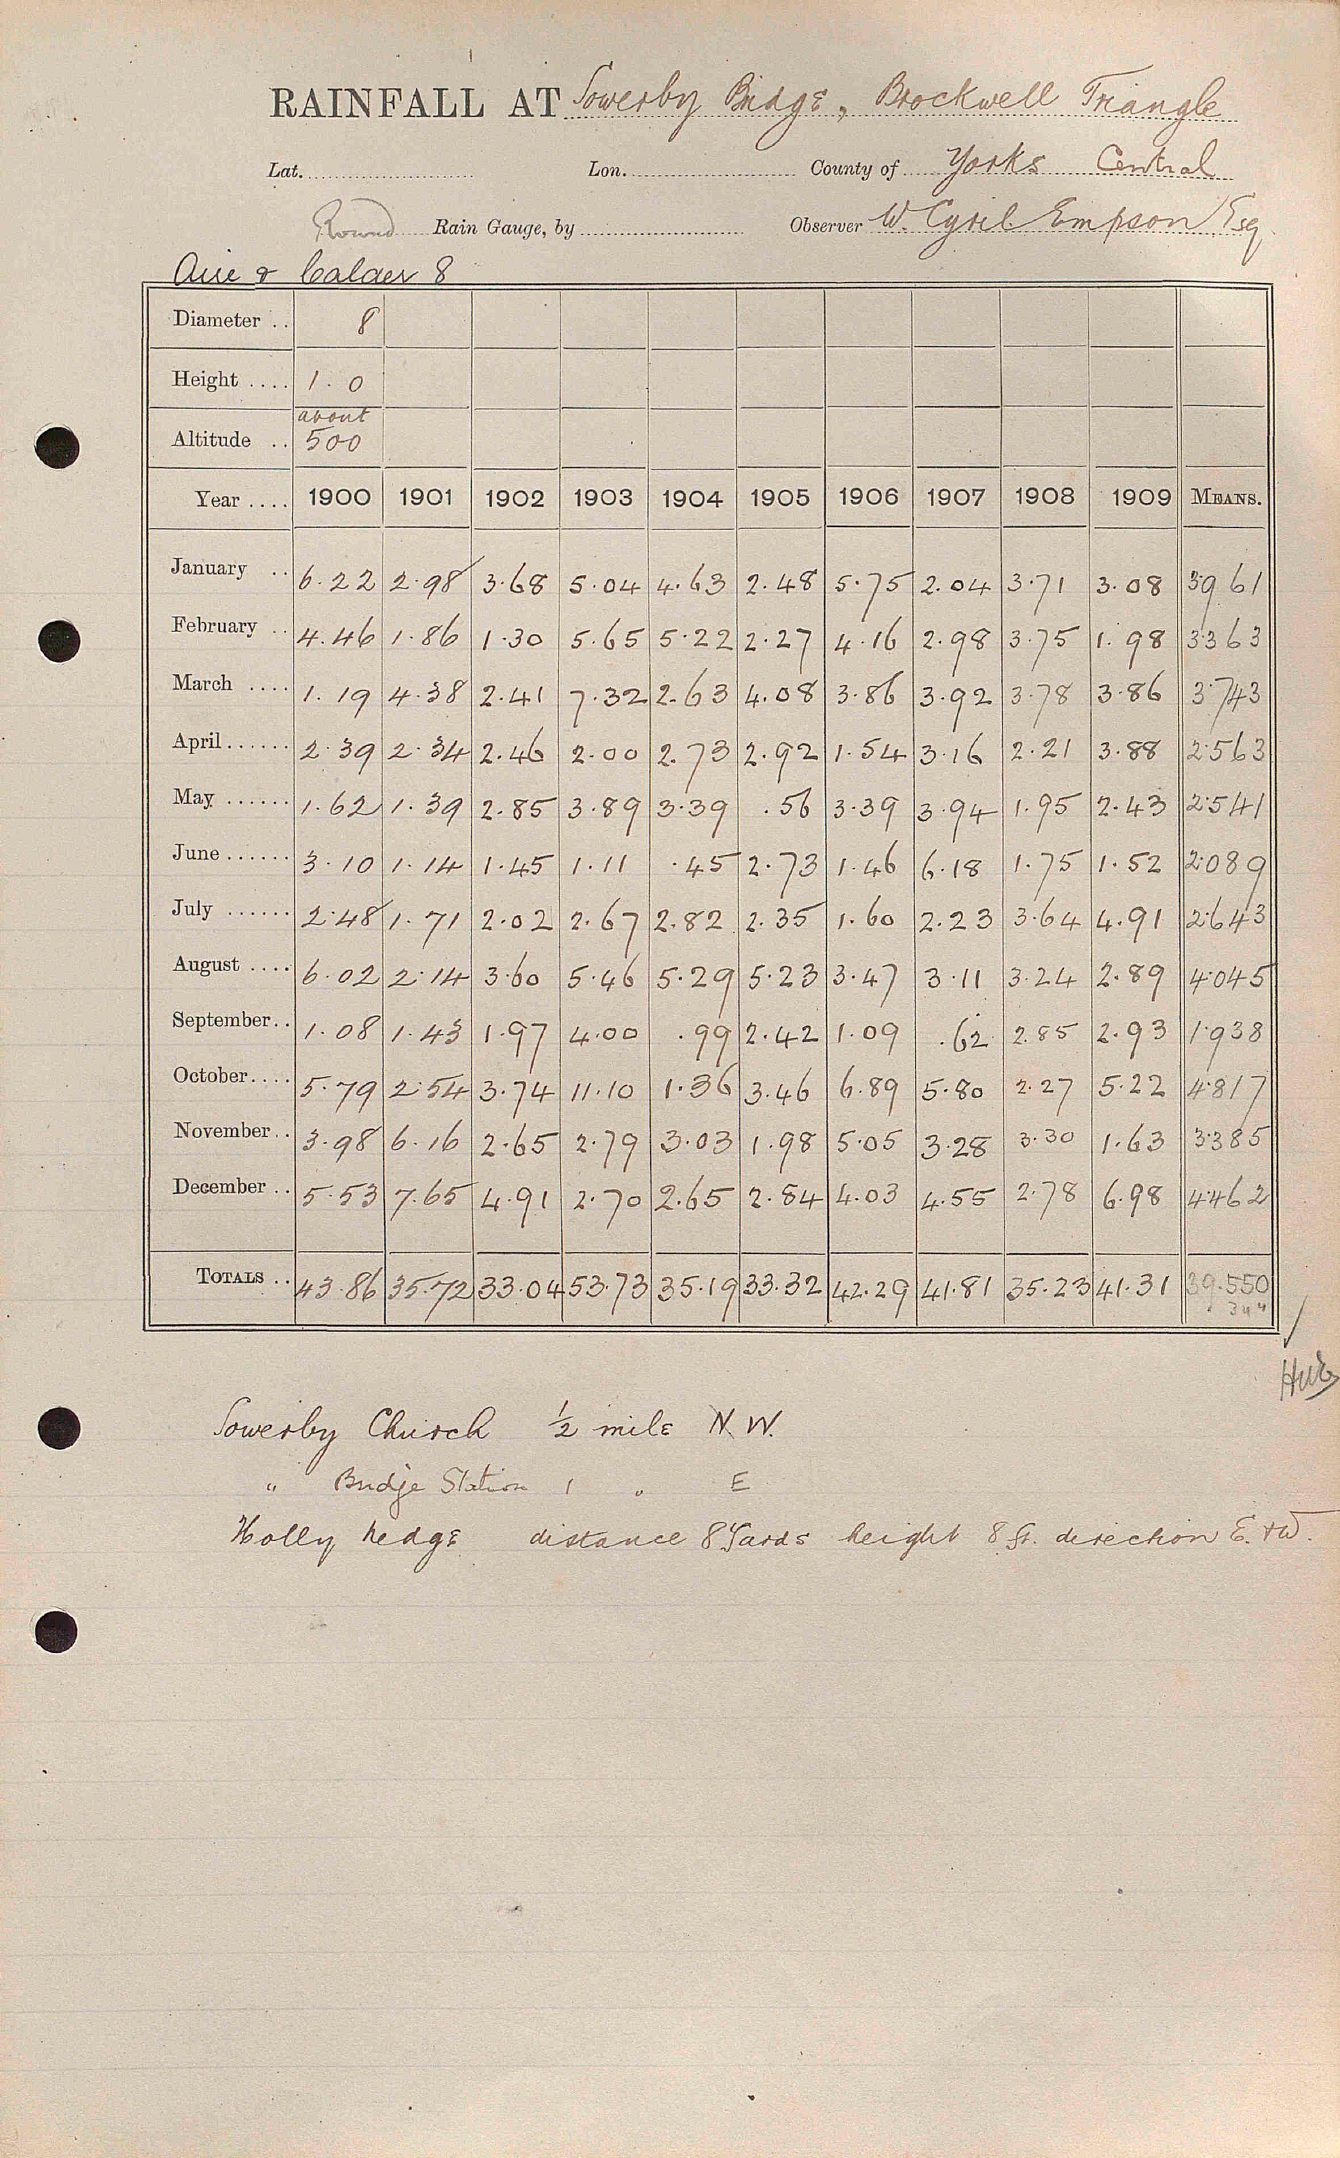 RAINFALL AT Sowerby Bridge, Brockwell Triangle
Lat. Lon. County of Yorks Central
Round Rain Gauge, by Observer W. Cyril Empson Esq
Aire & Calder 8
Diameter .. 8
Height .... 1.0
about
Altitude .. 500
Year .... 1900 1901 1902 1903 1904 1905 1906 1907 1908 1909 MEANS.
January .. 6.22 2.98 3.68 5.04 4.63 2.48 5.75 2.04 3.71 3.08 3.961
February .. 4.46 1.86 1.30 5.65 5.22 2.27 4.16 2.98 3.75 1.98 3.363
March .... 1.19 4.38 2.41 7.32 2.63 4.08 3.86 3.92 3.78 3.86 3.743
April...... 2.39 2.34 2.46 2.00 2.73 2.92 1.54 3.16 2.21 3.88 2.563
May ...... 1.62 1.39 2.85 3.89 3.39 .56 3.39 3.94 1.95 2.43 2.541
June ...... 3.10 1.14 1.45 1.11 .45 2.73 1.46 6.18 1.75 1.52 2.089
July ...... 2.48 1.71 2.02 2.67 2.82 2.35 1.60 2.23 3.64 4.91 2.643
August .... 6.02 2.14 3.60 5.46 5.29 5.23 3.47 3.11 3.24 2.89 4.045
September.. 1.08 1.43 1.97 4.00 .99 2.42 1.09 .62 2.85 2.93 1.938
October.... 5.79 2.54 3.74 11.10 1.36 3.46 6.89 5.80 2.27 5.22 4.817
November.. 3.98 6.16 2.65 2.79 3.03 1.98 5.05 3.28 3.30 1.63 3.385
December .. 5.53 7.65 4.91 2.70 2.65 2.84 4.03 4.55 2.78 6.98 4.462
TOTALS .. 43.86 35.72 33.04 53.73 35.19 33.32 42.29 41.81 35.23 41.31 39.550
Sowerby Church 1/2 mile N.W.
" Bridge Station 1 " E
Holly hedge distance 8 Yards height 8 ft. direction E. & W.